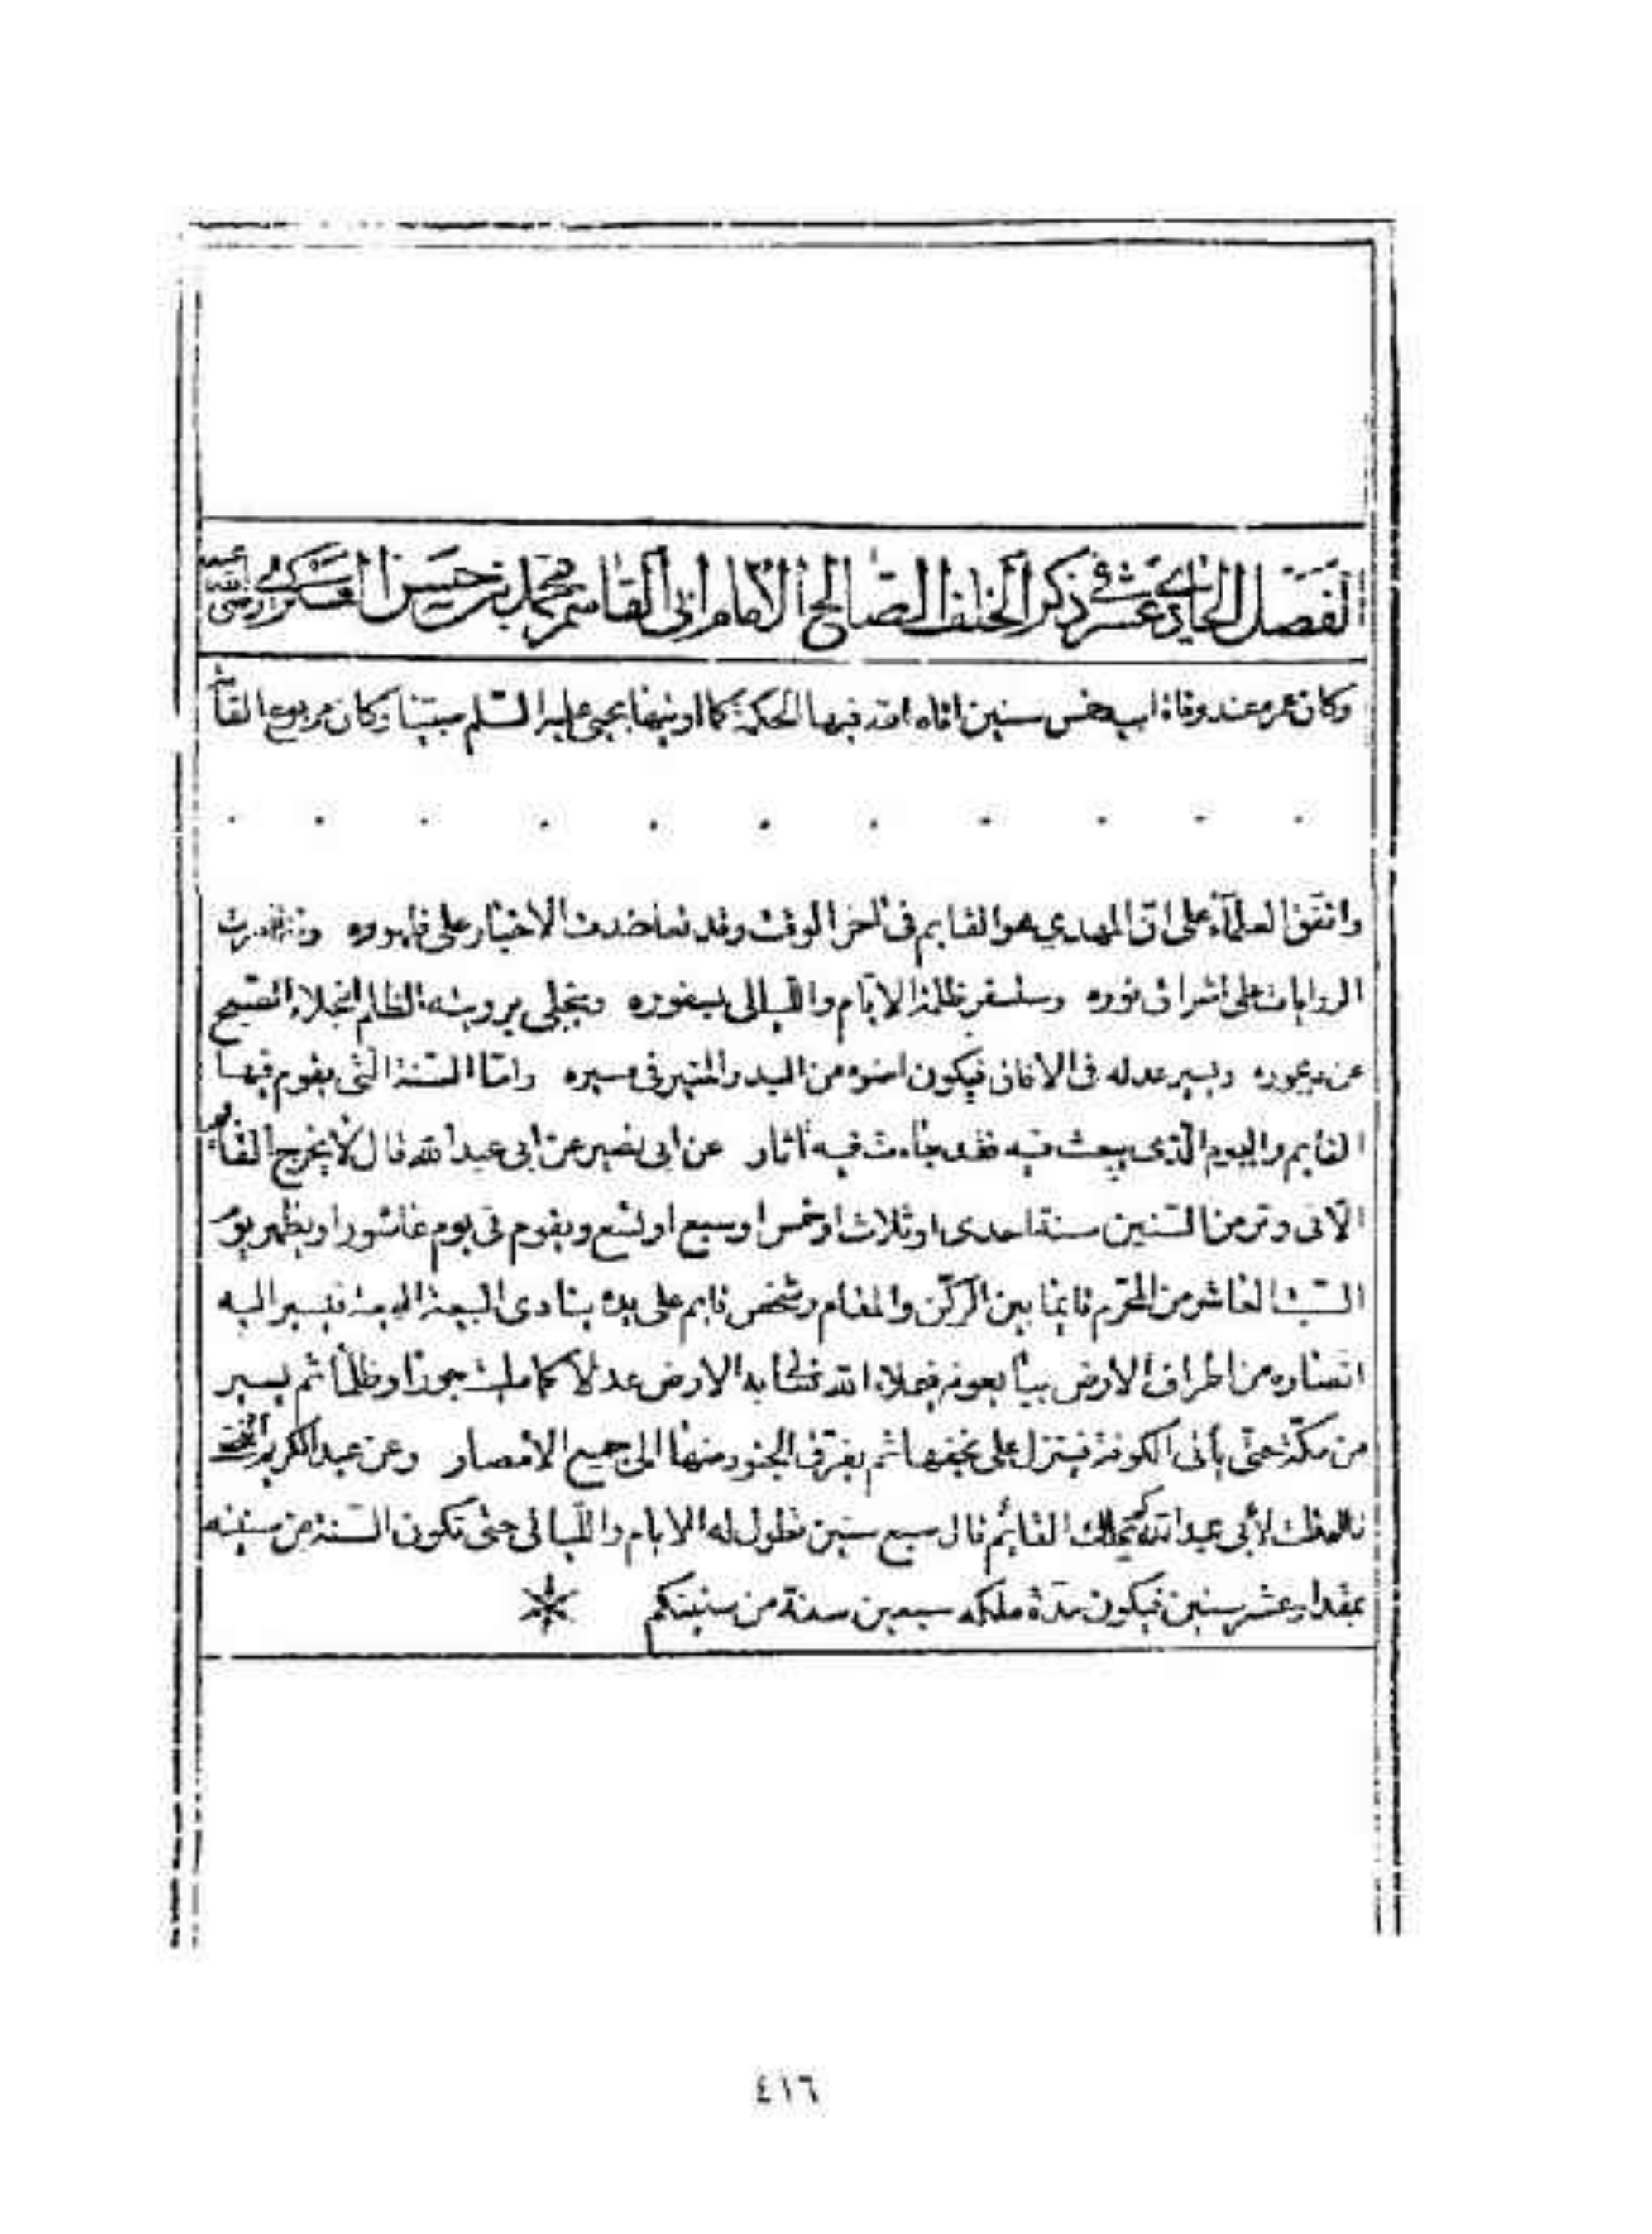 الفصل الحادي عشر في ذكر الخلف الصالح الامام ابي القاسم محمد بن حسن العسكري رضي الله عنه
وكان عمره عند وفاة ابيه خمس سنين اتاه الله فيها الحكمة كما اوتيها يحيى عليه السلم صبيّا وكان مربوع القامة
. . . . . . . . . . .
واتفق العلماء على انّ المهدي هو القايم في اخر الوقت وقد تعاضدت الاخبار على ظهوره وتظاهرت
الروايات على اشراق نوره وستسفر ظلمة الايّام والليالى بسفوره وينجلى برويته الظلم انجلاء الصبح
عن ديجوره ويسير عدله فى الافاق فيكون اضوء من البدر المنير فى مسيره وامّا السّنة الّتى يقوم فيها
القايم واليوم الّذى يبعث فيه فقد جاءت فيه اثار عن ابى بصير عن ابى عبد الله قال لا يخرج القايم
الّا فى وتر من السّنين سنة احدى او ثلاث او خمس او سبع او تسع ويقوم فى يوم عاشورا ويظهر يوم
السّبت العاشر من المحرّم قايما بين الركن والمقام وشخص قايم على يده ينادى البيعة البيعة فيسير اليه
انصاره من اطراف الارض يبايعونه فيملاء الله تعالى به الارض عدلا كما ملئت جورا وظلما ثم يسير
من مكّة حتى يأتى الكوفة فينزل على نجفها ثم يفرّق الجنود منها الى جميع الامصار وعن عبد الكريم
قال قلت لأبى عبد الله كم يملك القائم قال سبع سنين تطول له الايام واللّيالى حتى تكون السّنة من سنينه
بمقدار عشر سنين فيكون مدّة ملكه سبعين سنة من سنينكم
٤١٦